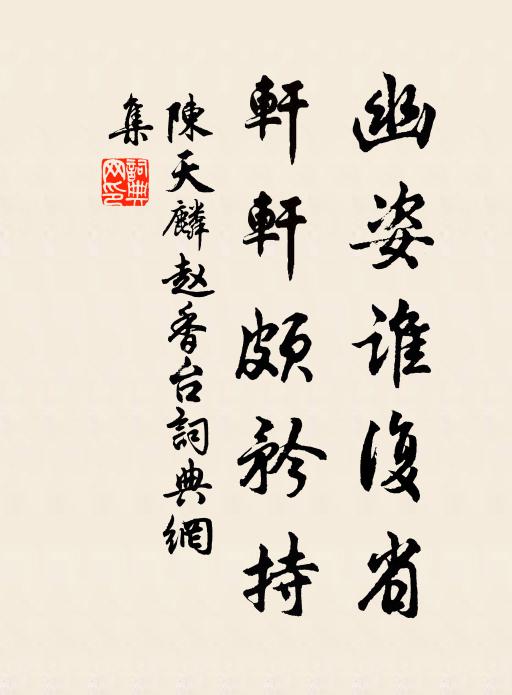 幽姿誰復省
軒軒頗矜持
陳天麟赵香台詞典網
集
詞典網印